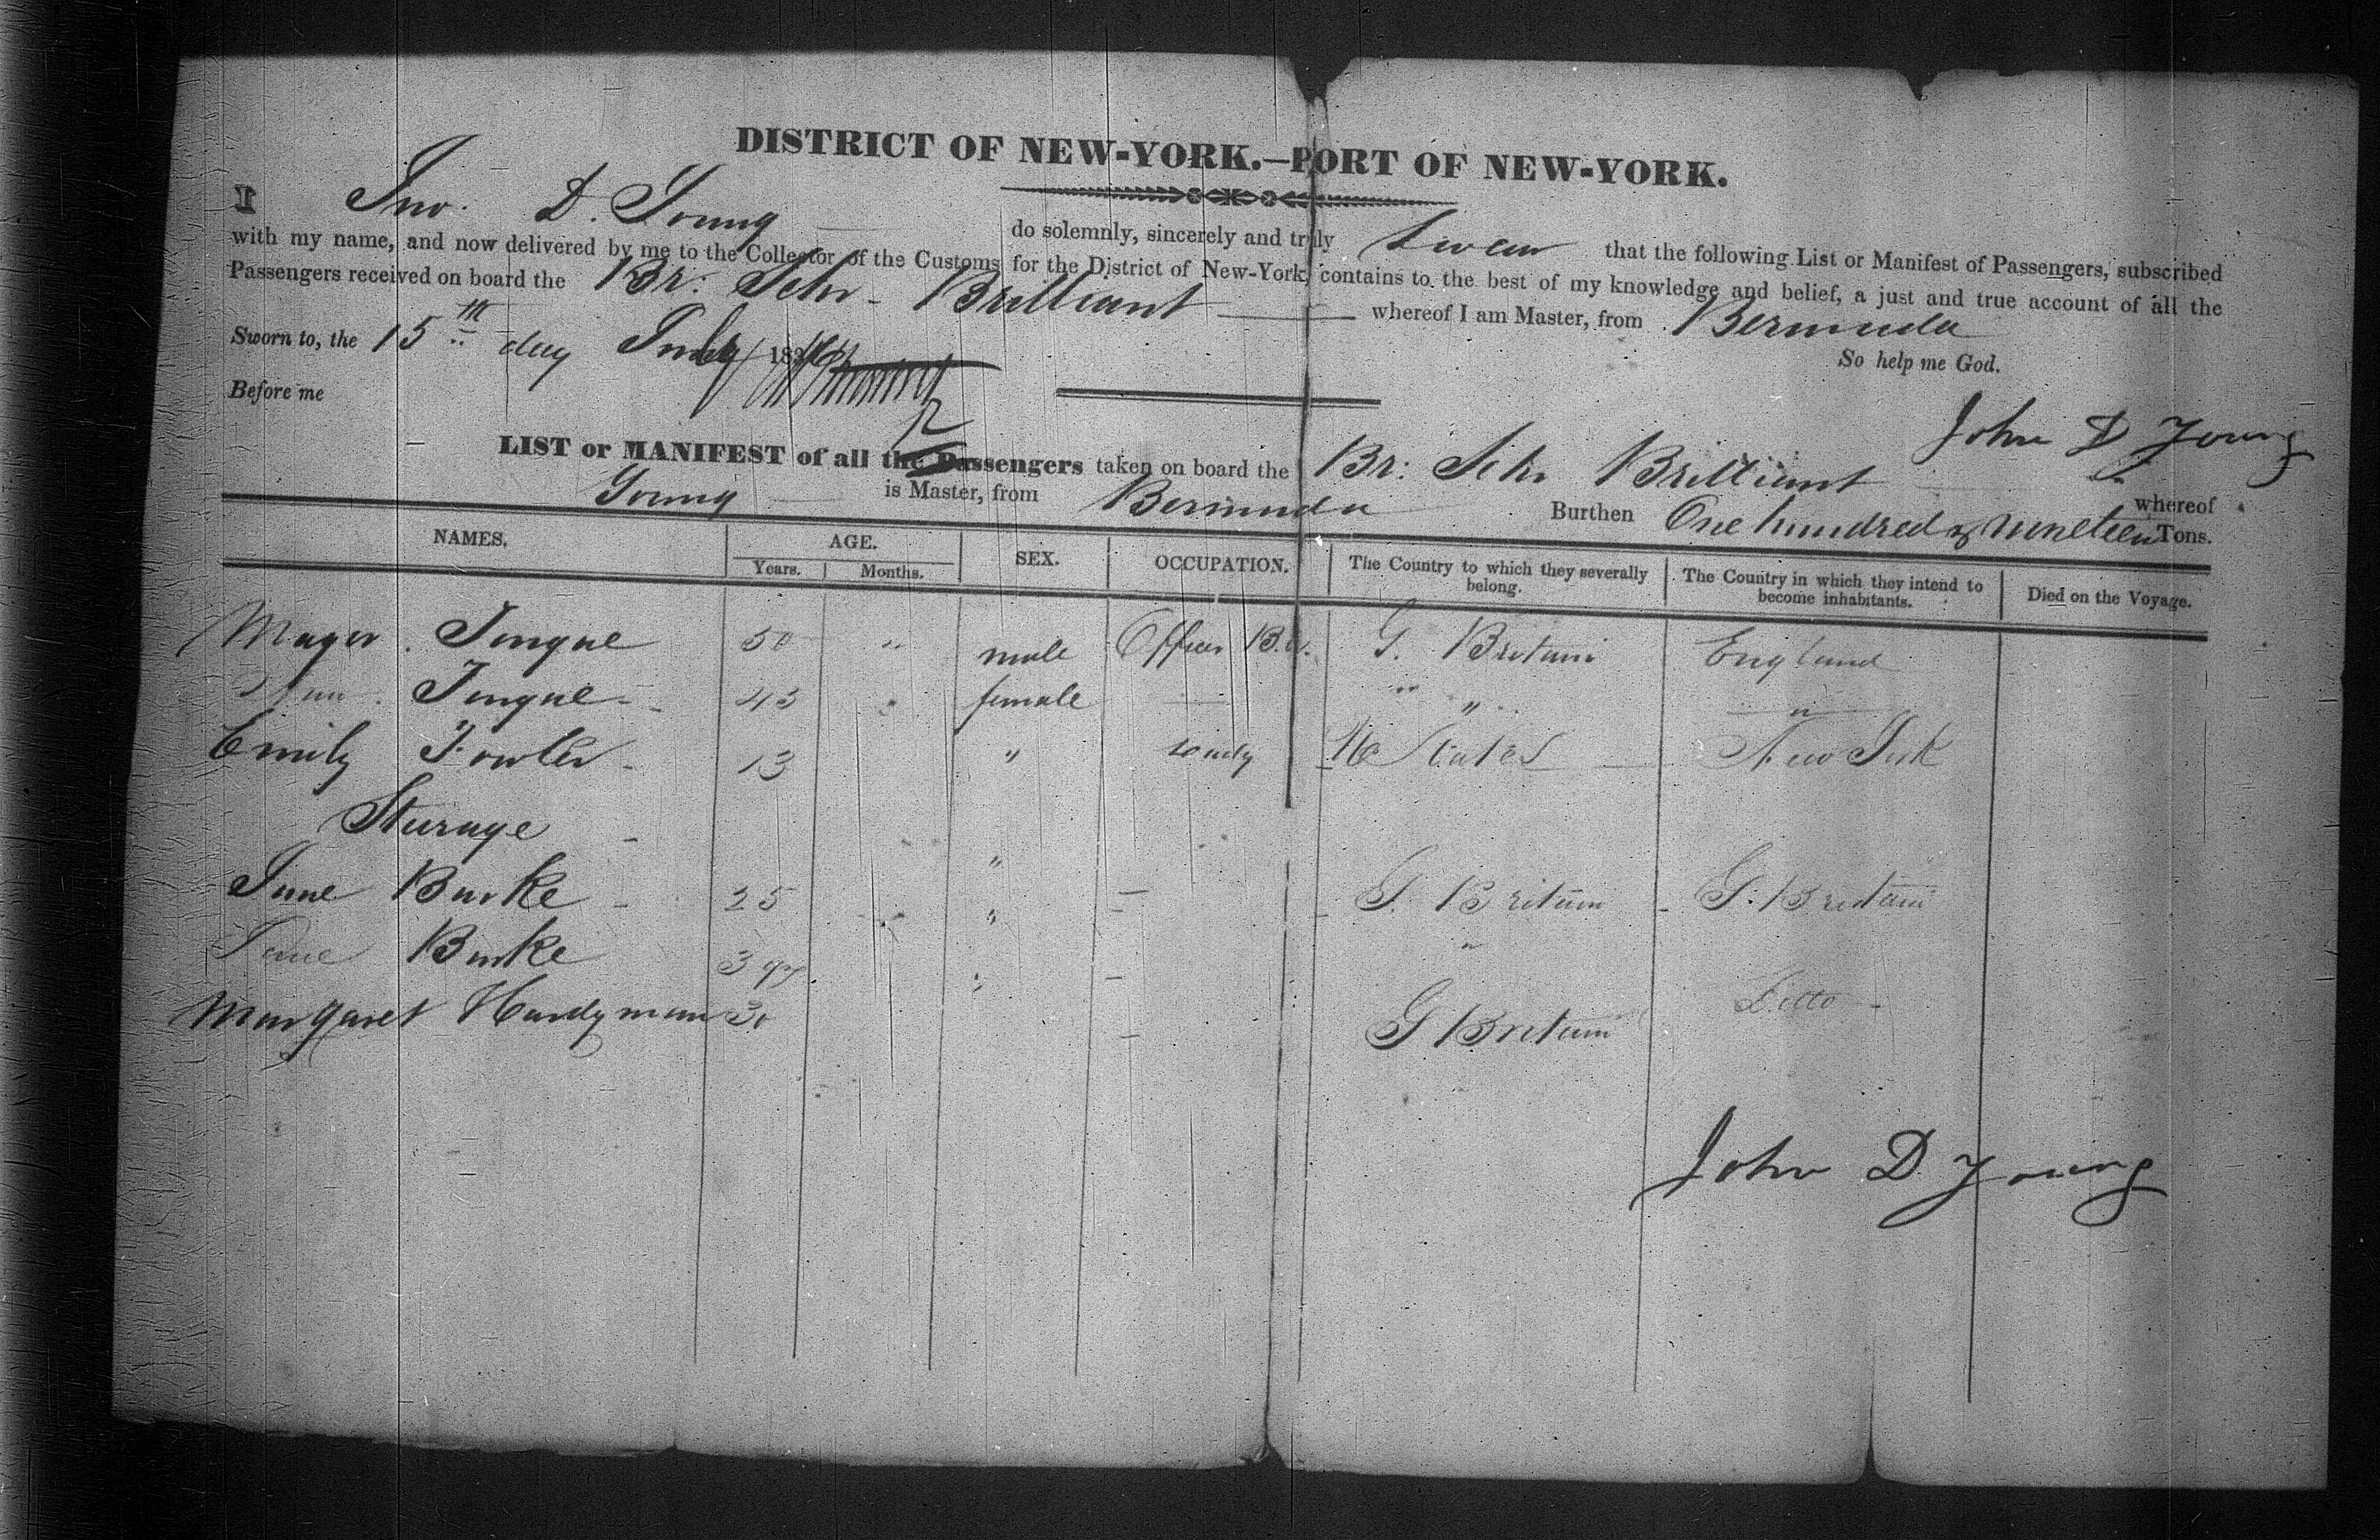 DISTRICT OF NEW-YORK.—PORT OF NEW-YORK.
I Jno. D. Young do solemnly, sincerely and truly Swear that the following List or Manifest of Passengers, subscribed
with my name, and now delivered by me to the Collector of the Customs for the District of New-York, contains to the best of my knowledge and belief, a just and true account of all the
Passengers received on board the Br: Schr Brilliant whereof I am Master, from Bermuda
Sworn to, the 15th day July 18
So help me God.
Before me
John D Young
LIST or MANIFEST of all the Passengers taken on board the Br: Schr Brilliant whereof
Young is Master, from Bermuda Burthen One hundred & nineteen Tons.
NAMES. AGE. SEX. OCCUPATION. The Country to which they severally belong. The Country in which they intend to become inhabitants. Died on the Voyage.
Years. Months.
Major Tongue 50 " male Officer G. Britain England
Tongue 45 female — " "
Emily Fowler 13 " Lady States New York
Sturage "
Jane Burke 25 " — G. Britain G. Britain
Jane Burke 3 " — "
Margaret Hardyman 30 — G Britain Ditto
John D. Young